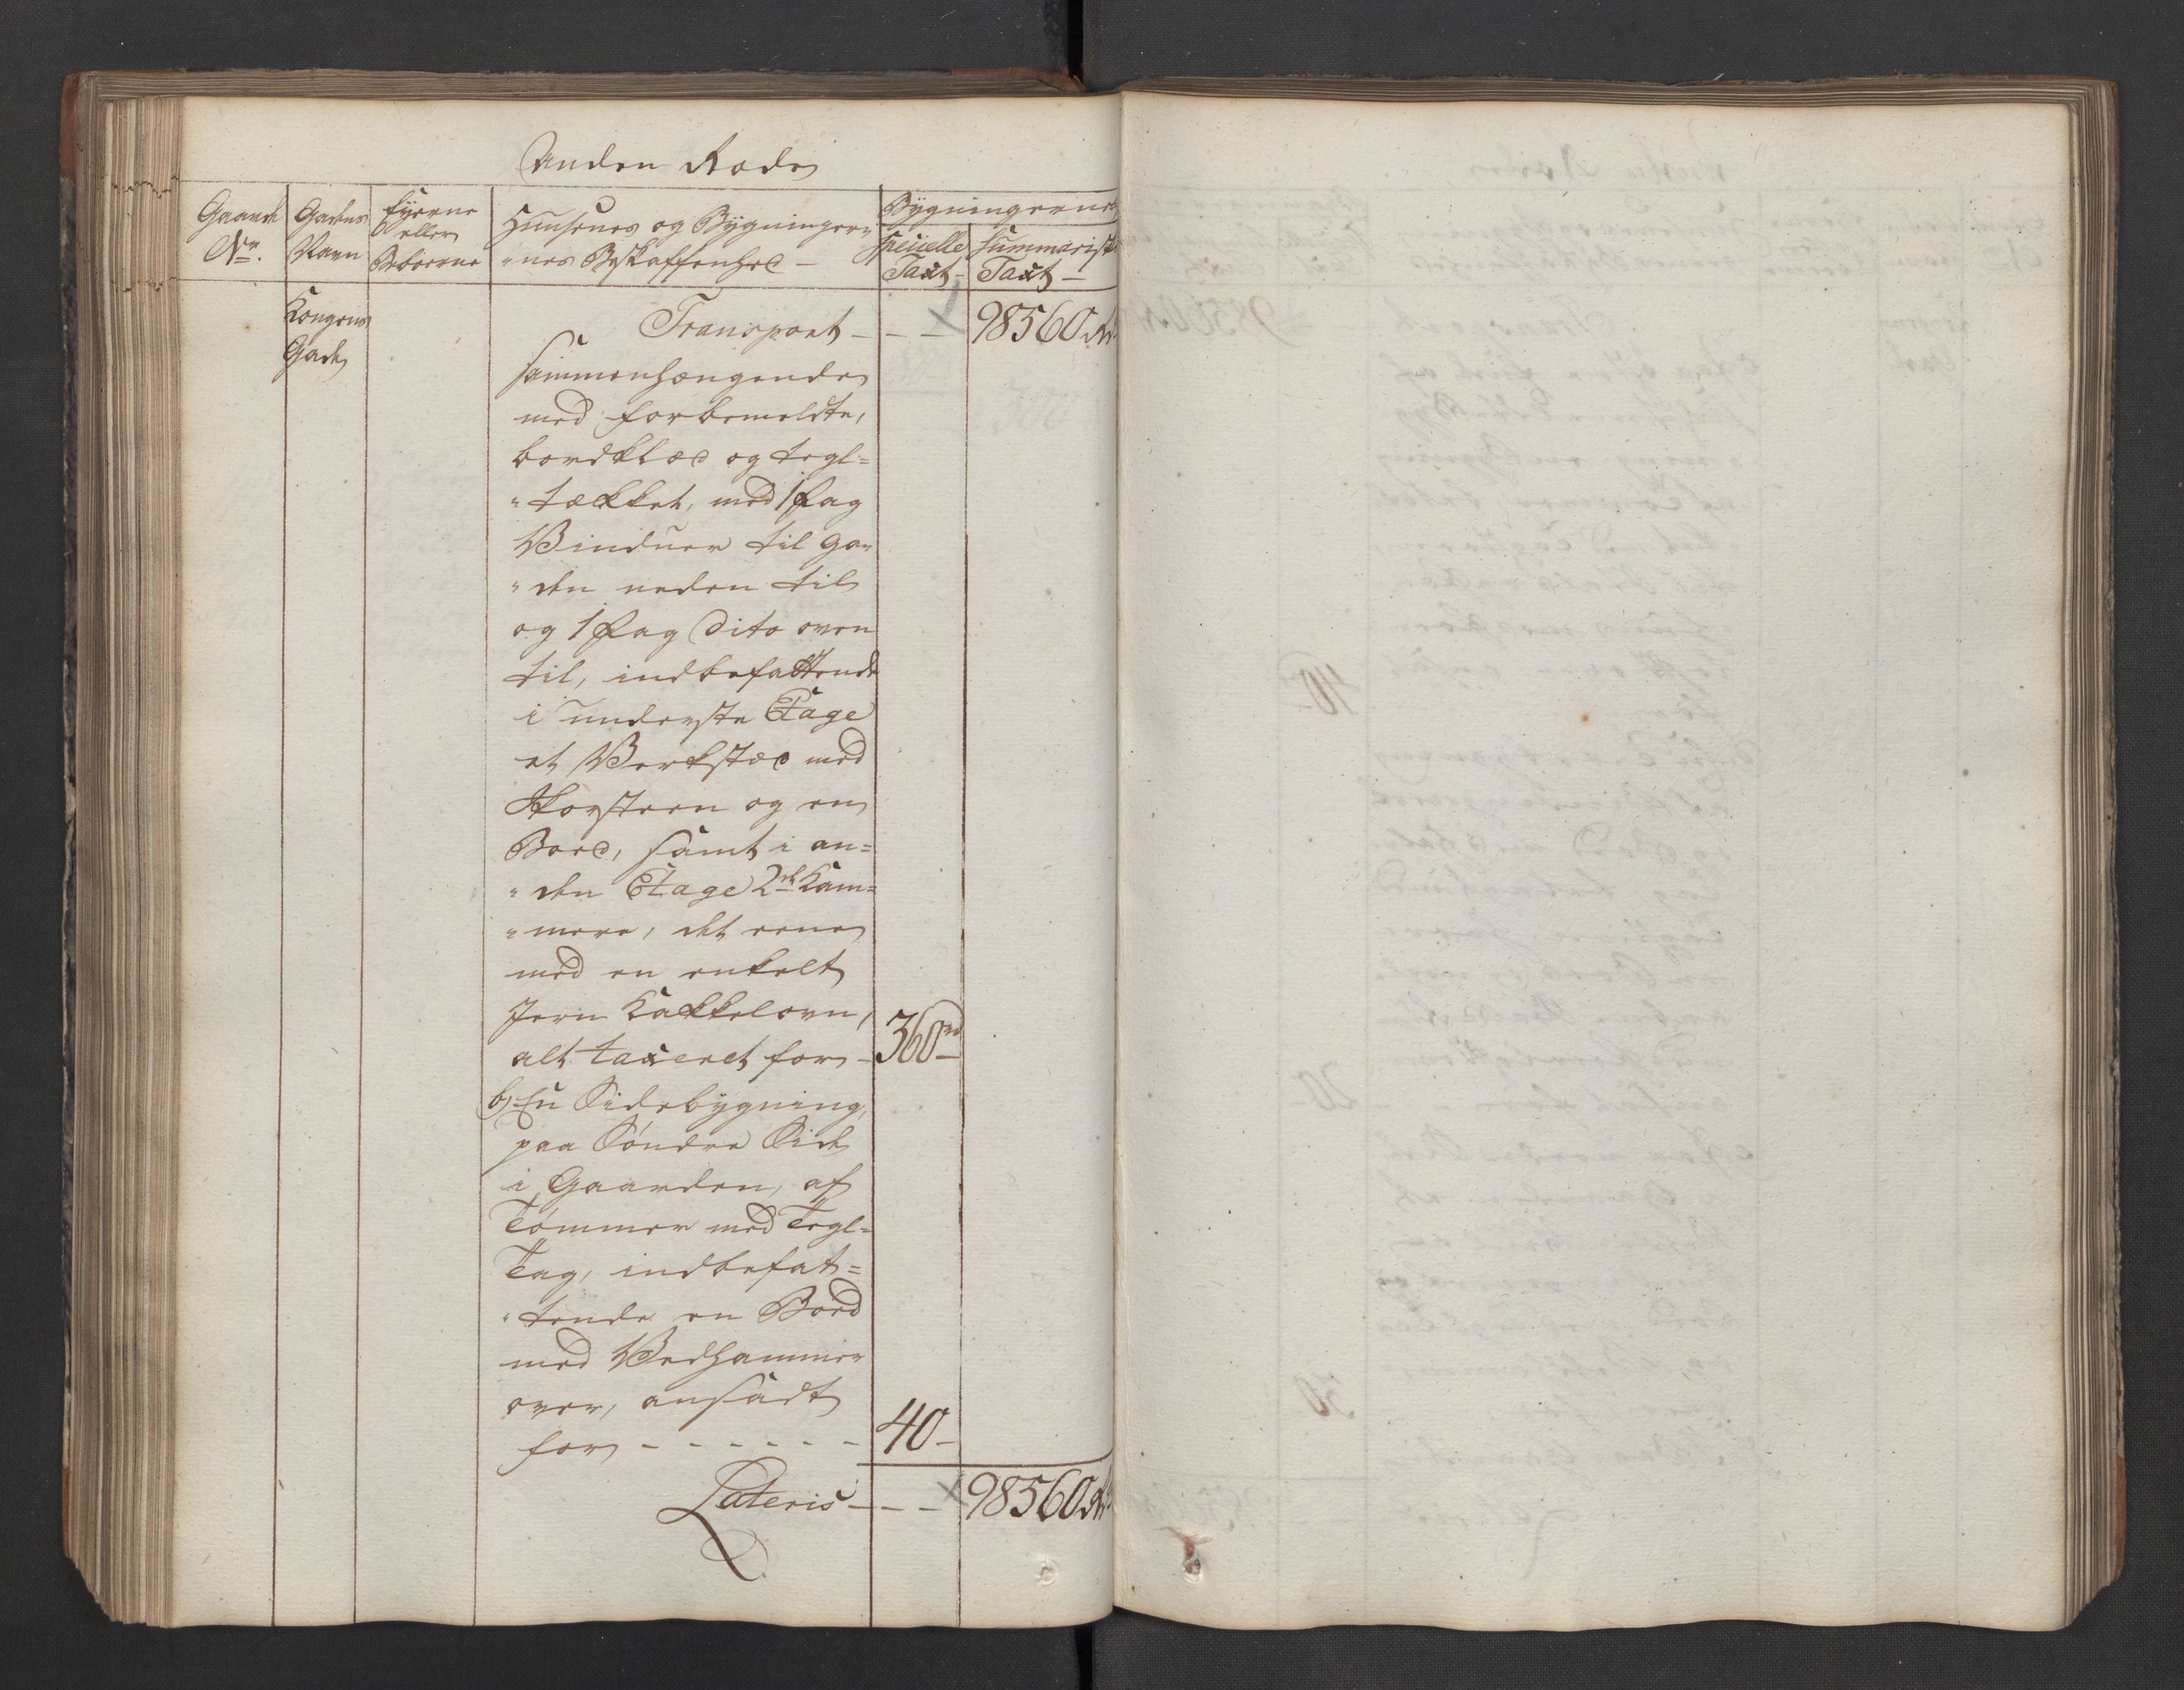 Anden Rode
Gaarde No.
Gadens Navn
Eyerne eller Beboerne
Huusenes og Bygninger-
"nes Beskaffenhed -
Bygningernes
Specielle Taxt - Summariske Taxt -
Kongens Gade
Transport - - - 98560 rd
sammenhængende
med forbemeldte,
bordklæd og tegl=
"tækket, med 1 Fag
Vinduer til Ga=
"den neden til
og 1 Fag Dito oven
til, indbefattende
i underste Etage
et Verkstæd med
Skorsteen og en
Boed, samt i an=
"den Etage 2de Kam=
"mere, det eene
med en enkelt
Jern Kakkelovn,
alt taxeret for - 360 rd -
b) En Sidebygning,
paa Søndre Side
i Gaarden, af
Tømmer med Tegl=
Tag, indbefat=
"tende en Boed
med Vedhammer
over, ansadt
for - - - - - - - 40 -
Lateris - - - 98560 rd